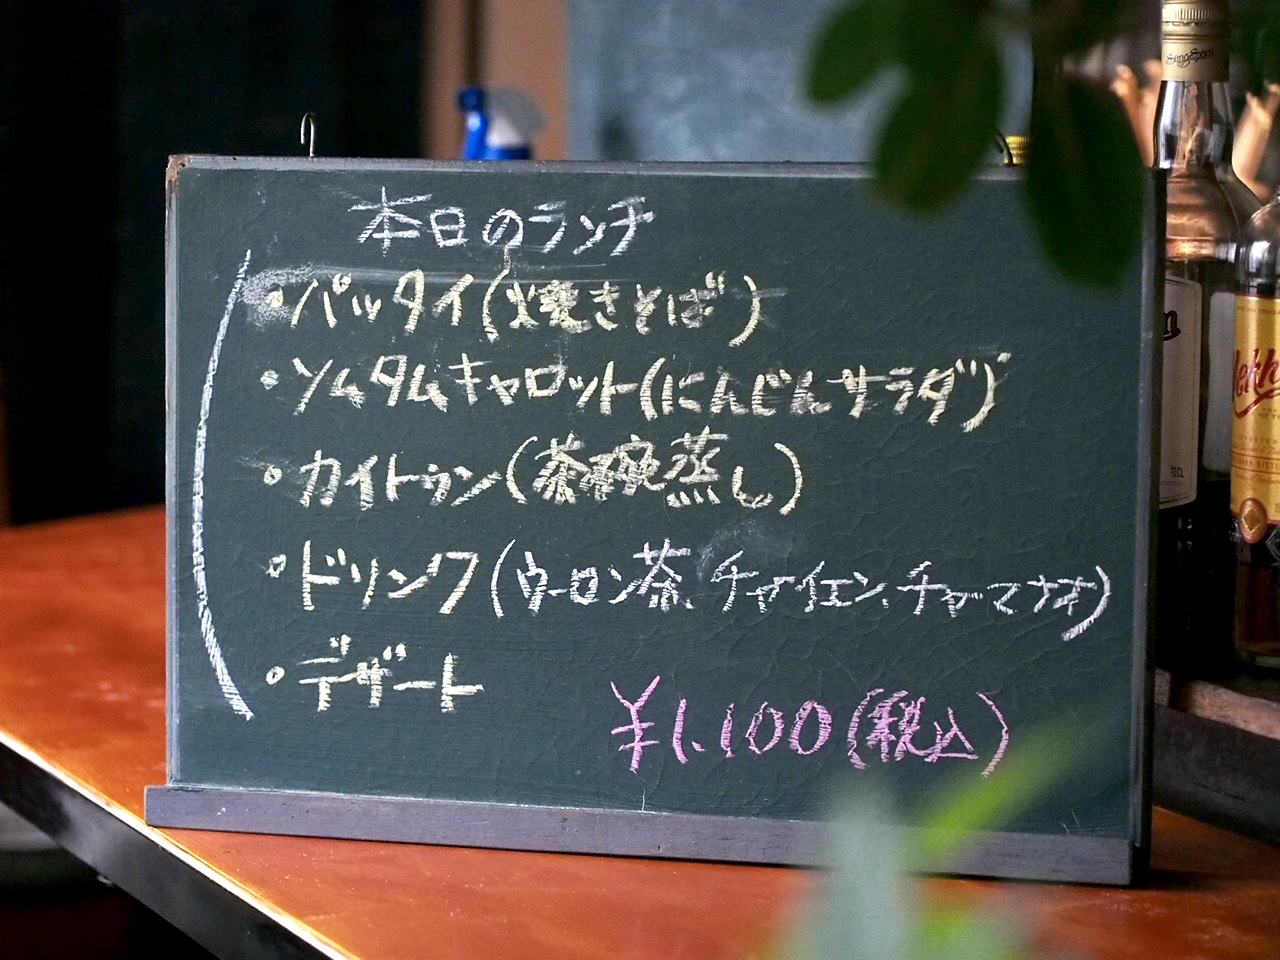 本日のランチ
・パッタイ(焼きそば)
・ソムタムキャロット(にんじんサラダ)
・カイトゥン(茶碗蒸し)
・ドリンク(ウーロン茶、チャイエン、チャーマナオ)
・デザート
¥1,100(税込)
SangSom
70CL
Mekh